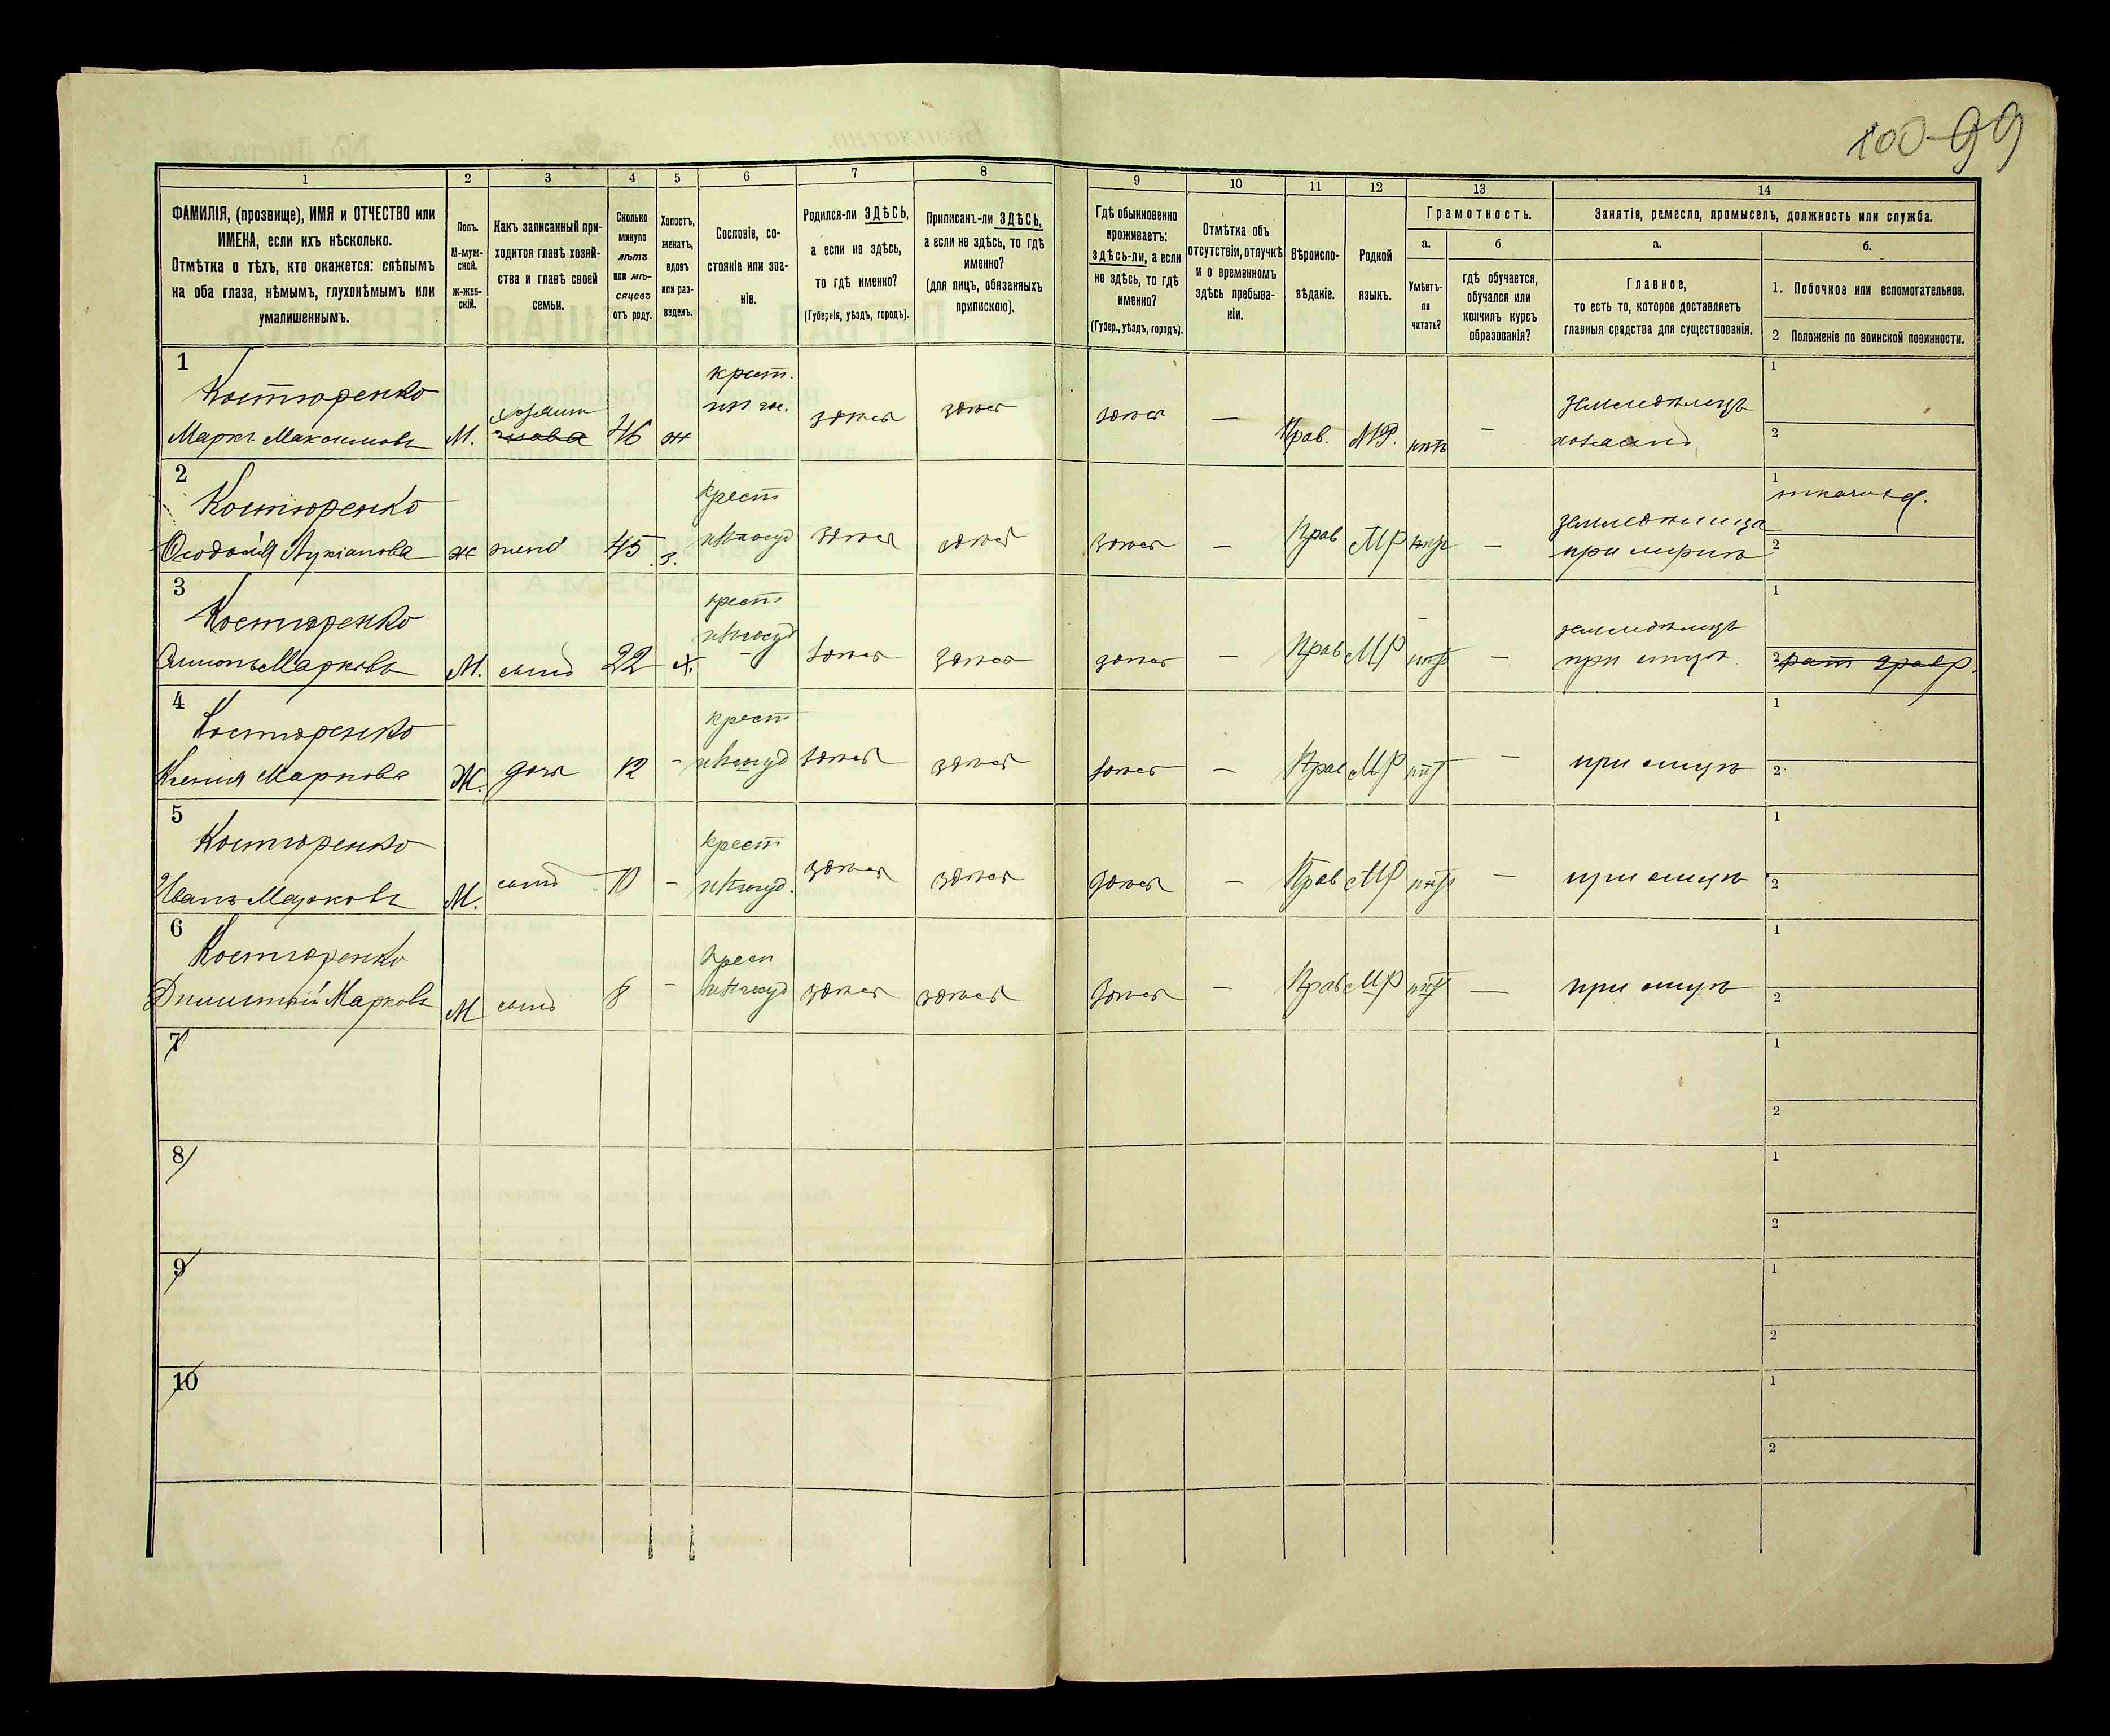 100 99
1 2 3 4 5 6 7 8 9 10 11 12 13 14
ФАМИЛІЯ, (прозвище), ИМЯ и ОТЧЕСТВО или
ИМЕНА, если ихъ нѣсколько.
Отмѣтка о тѣхъ, кто окажется: слѣпымъ
на оба глаза, нѣмымъ, глухонѣмымъ или
умалишеннымъ.
Полъ.
М-муж-
ской.
ж-жен-
скій.
Какъ записанный при-
ходится главѣ хозяй-
ства и главѣ своей
семьи.
Сколько
минуло
лѣтъ
или мѣ-
сяцевъ
отъ роду.
Холостъ,
женатъ,
вдовъ
или раз-
веденъ.
Сословіе, со-
стояніе или зва-
ніе.
Родился-ли ЗДѢСЬ,
а если не здѣсь,
то гдѣ именно?
(Губернія, уѣздъ, городъ).
Приписанъ-ли ЗДѢСЬ,
а если не здѣсь, то гдѣ
именно?
(для лицъ, обязанныхъ
припискою).
Гдѣ обыкновенно
проживаетъ:
здѣсь-ли, а если
не здѣсь, то гдѣ
именно?
(Губер., уѣздъ, городъ).
Отмѣтка объ
отсутствіи, отлучкѣ
и о временномъ
здѣсь пребыва-
ніи.
Вѣроиспо-
вѣданіе.
Родной
языкъ.
Грамотность.
а.
Умѣетъ-
ли
читать?
б
гдѣ обучается,
обучался или
кончилъ курсъ
образованія?
Занятія, ремесло, промыселъ, должность или служба.
а.
Главное,
то есть то, которое доставляетъ
главныя средства для существованія.
б.
1. Побочное или вспомогательное.
2 Положеніе по воинской повинности.
1 крест. 1
Костюренко хозяинъ из гос. здѣсь здѣсь здѣсь — земледѣлецъ
Маркъ Максимовъ М. глава 46 ж Прав. МР. нѣтъ — хозяинъ 2
2 крест 1 ткачиха.
Костюренко земледѣлица
Феодосія Лукіанова ж жена 45 з. изъ госуд здѣсь здѣсь здѣсь — Прав МР нѣтъ — при мужѣ 2
3 крест 1
Костюренко изъ госуд земледѣлецъ
Симонъ Марковъ М. сынъ 22 х. здѣсь здѣсь здѣсь — Прав МР нѣтъ — при отцѣ 2
4 крест 1
Костюренко
Ксенія Маркова Ж. дочь 12 - изъ госуд здѣсь здѣсь здѣсь — Прав МР нѣт — при отцѣ 2
5 крест 1
Костюренко
Иванъ Марковъ М. сынъ 10 - изъ госуд. здѣсь здѣсь здѣсь — Прав МР нѣтъ — при отцѣ 2
6 крест 1
Костюренко
Дмитрій Марковъ М сынъ 8 - изъ госуд здѣсь здѣсь здѣсь — Прав МР нѣт — при отцѣ 2
7 1
2
8 1
2
9 1
2
10 1
2